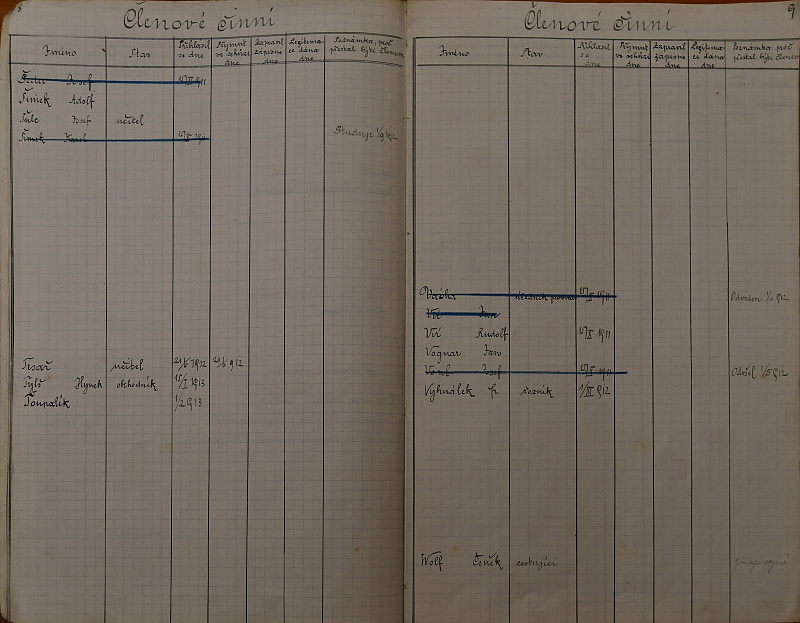 8
Členové činní
Jméno Stav Přihlásil se dne Přijmut ve schůzi dne Zapravil zápisné dne Legitimace dána dne Poznámka, proč přestal býti členem
Josef 15/II 1911
Šimek Adolf
Šulc Josef učitel
Šimek Karel 15/II 1911 Studuje 1/9 1912
Tesař učitel 21/5 1912 21/5 912
Tylš Hynek obchodník 15/I 1913
Ťoupalík 1/2 913
9
Členové činní
Jméno Stav Přihlásil se dne Přijmut ve schůzi dne Zapravil zápisné dne Legitimace dána dne Poznámka proč přestal býti členem
Vaňha úředník 15/II 1911 Odveden 1/10 912
Vič Jan
Vič Rudolf 15/II 1911
Vognar Jan
Josef 15/II 1911 Odešel 1/5 912
Vyhnálek fr. řezník 1/III 912
Wolf Čeněk cestující